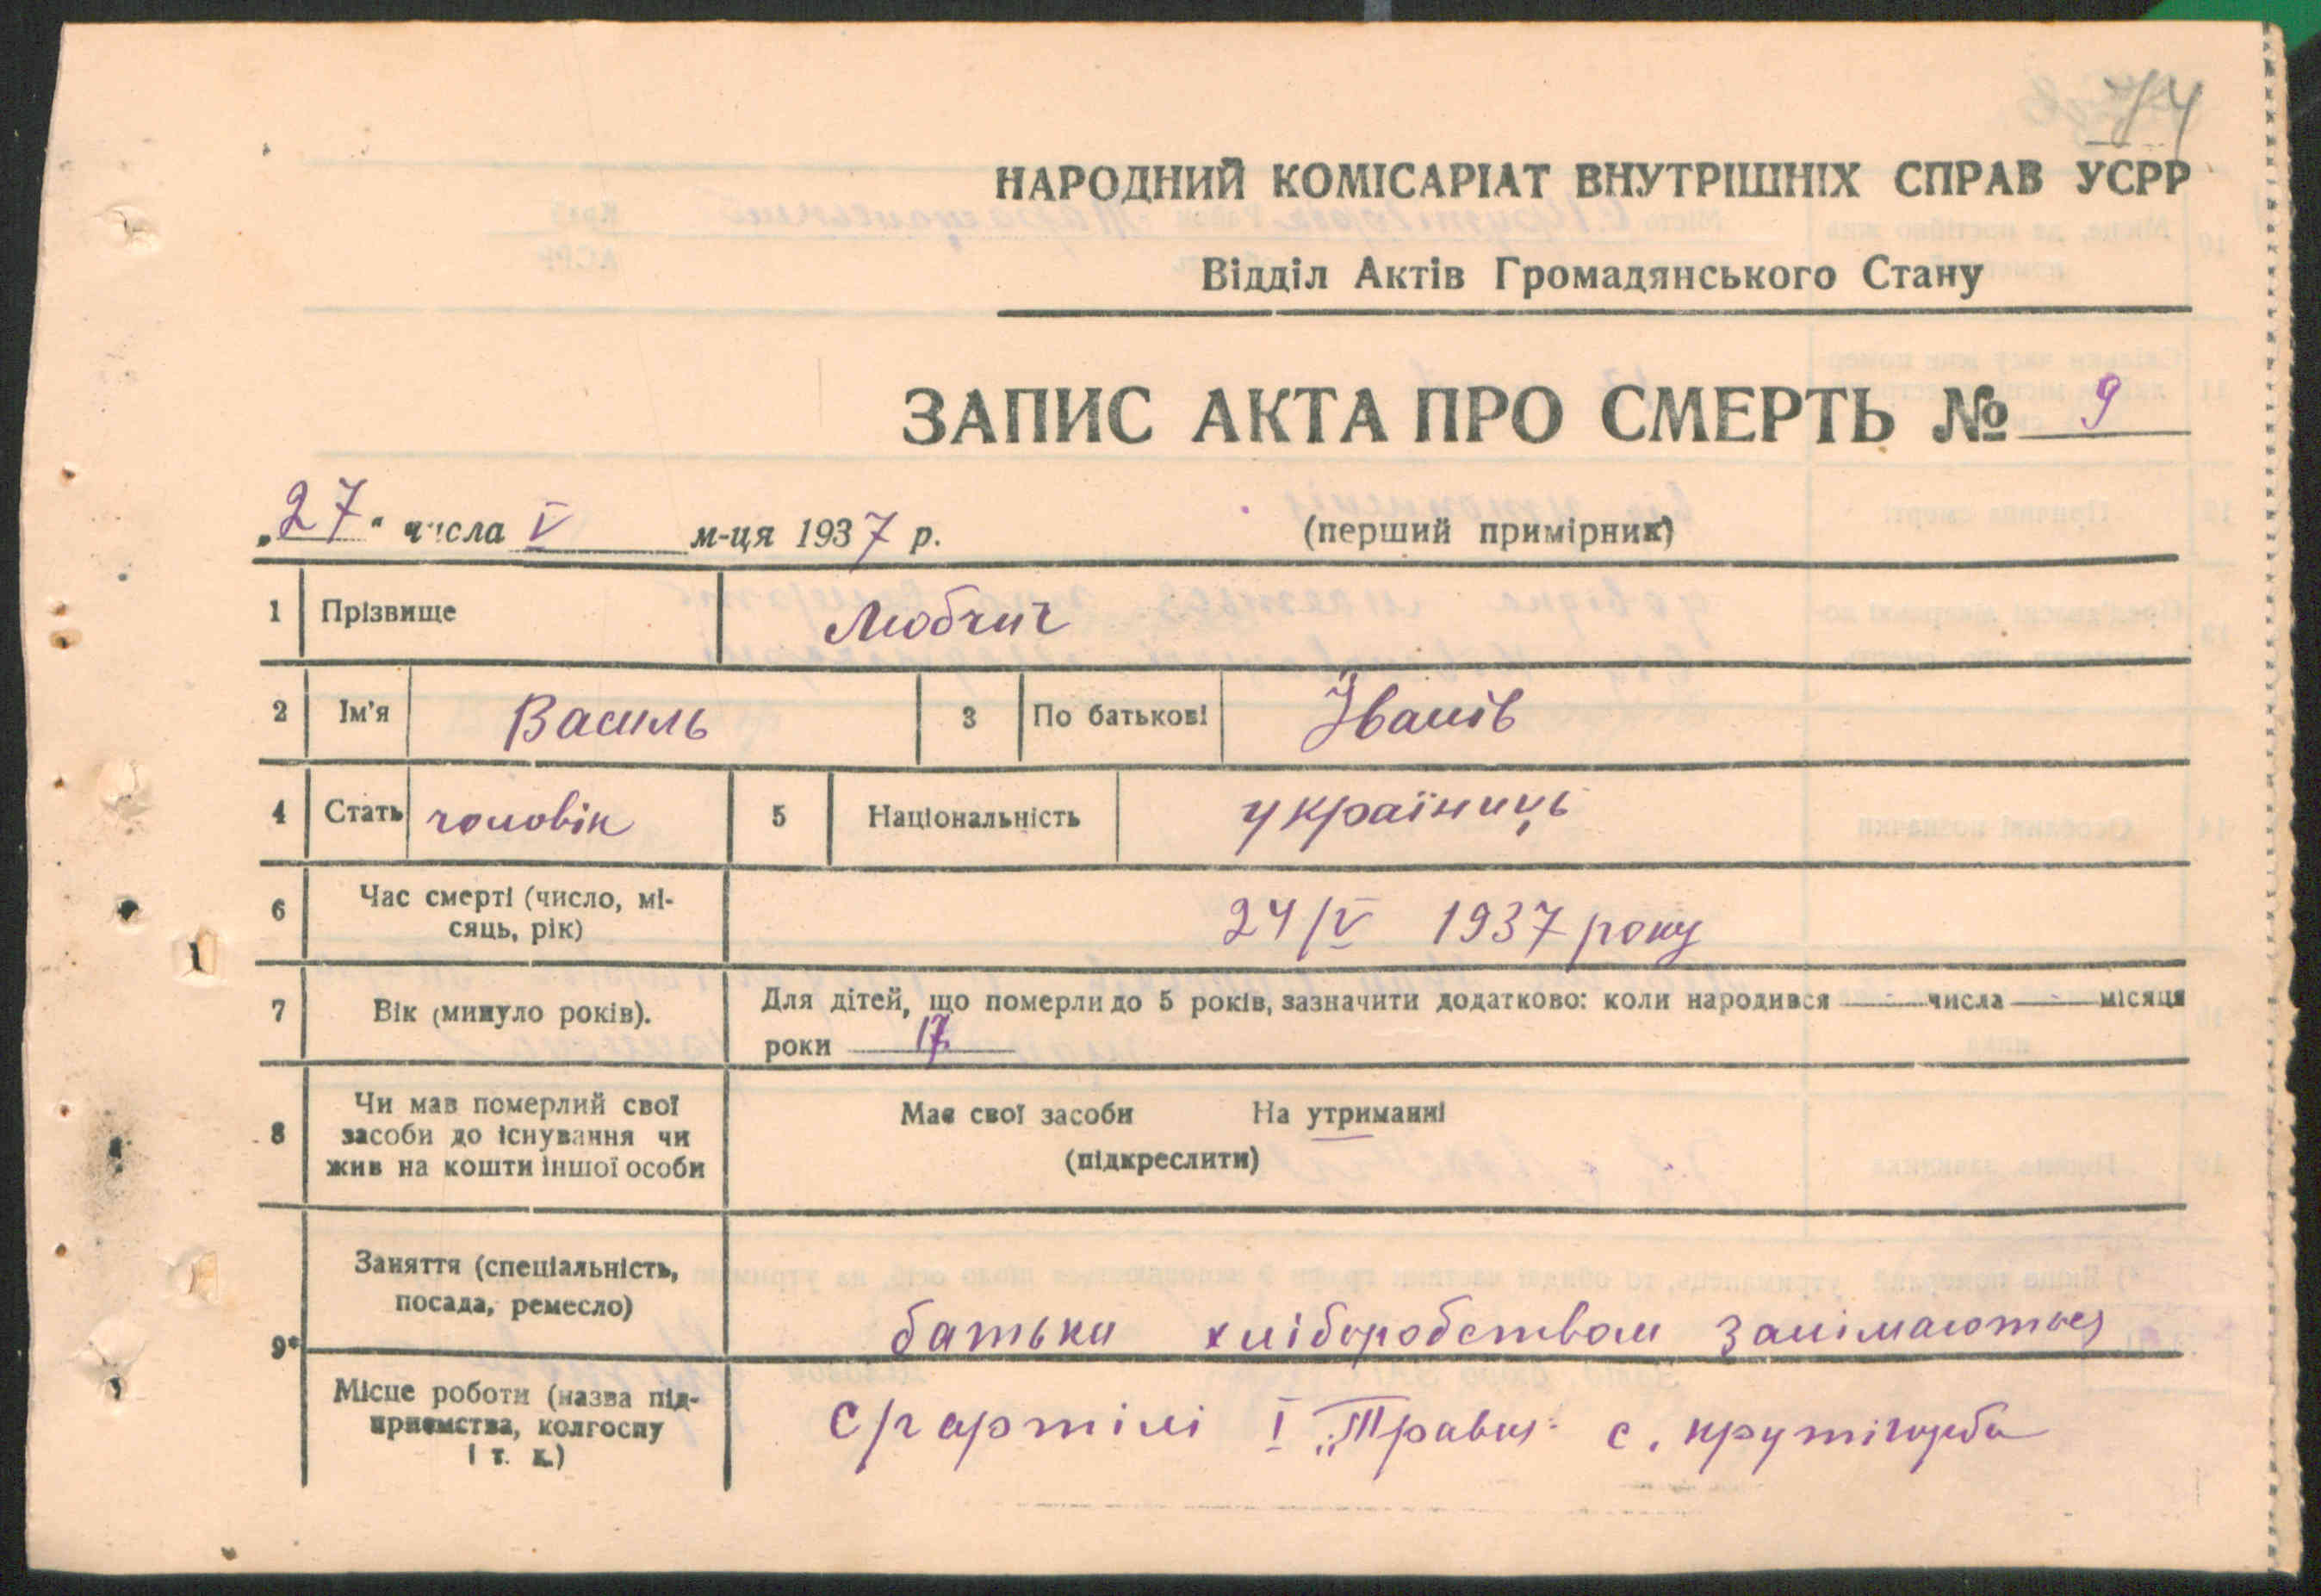 74
НАРОДНИЙ КОМІСАРІАТ ВНУТРІШНІХ СПРАВ УСРР
Відділ Актів Громадянського Стану
ЗАПИС АКТА ПРО СМЕРТЬ № 9
„27“ числа V м-ця 1937 р. (перший примірник)
1 Прізвище Любчич
2 Ім'я Василь 3 По батькові Іванів
4 Стать чоловік 5 Національність україниць
6 Час смерті (число, мі-
сяць, рік) 24/V 1937 року
7 Вік (минуло років). Для дітей, що померли до 5 років, зазначити додатково: коли народився числа місяця
роки 17
8 Чи мав померлий свої
засоби до існування чи
жив на кошти іншої особи
Має свої засоби На утриманні
(підкреслити)
9* Заняття (спеціальність,
посада, ремесло) батьки хліборобством занімаються
Місце роботи (назва під-
приємства, колгоспу
і т. д.) с/г артілі І „Травня" с. крутігорба